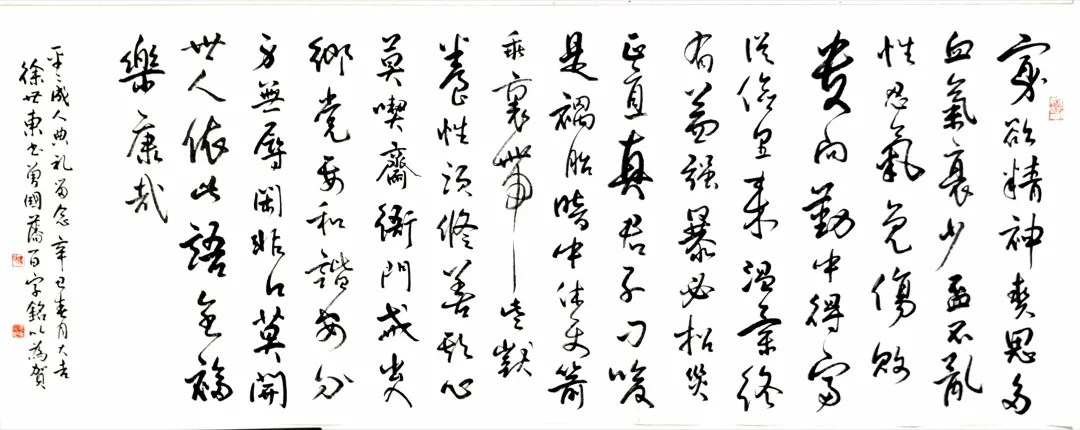 寡欲精神爽思多
血氣衰少盃不亂
性忍氣免傷財
貴向勤中得富
從儉里來溫柔終
有益强暴必招災
正直真君子刁唆
是禍胎暗中休使箭
乖裏帶些獃
養性須修善欺心
莫喫齋衙門戒出入
鄉党要和諧安分
身無辱閑非口莫開
世人依此語全福
樂康哉
平之成人典礼留念辛巳春月大吉
徐世東书曾國藩百字銘以為贺